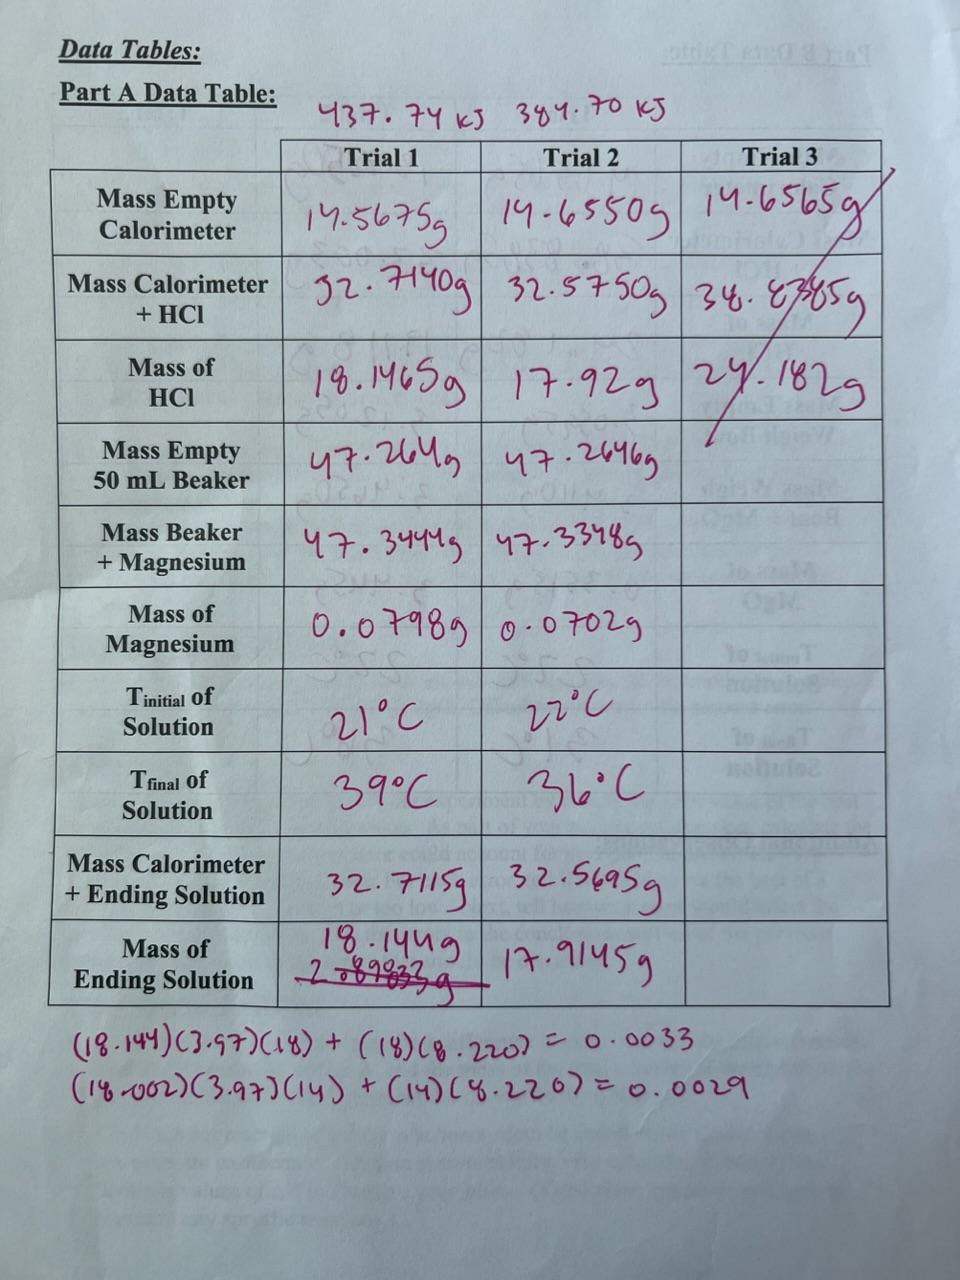 Data Tables:
Part A Data Table:
437.74 kJ 384.70 kJ
Trial 1 Trial 2 Trial 3
Mass Empty Calorimeter 14.5675g 14.6550g 14.6565g
Mass Calorimeter + HCl 32.7140g 32.5750g 38.8385g
Mass of HCl 18.1465g 17.92g 24.182g
Mass Empty 50 mL Beaker 47.264g 47.2646g
Mass Beaker + Magnesium 47.3444g 47.3348g
Mass of Magnesium 0.0798g 0.0702g
Tinitial of Solution 21°C 22°C
Tfinal of Solution 39°C 36°C
Mass Calorimeter + Ending Solution 32.7115g 32.5695g
Mass of Ending Solution 18.144g 17.9145g
(18.144)(3.97)(18) + (18)(8.220) = 0.0033
(18.002)(3.97)(14) + (14)(8.220) = 0.0029